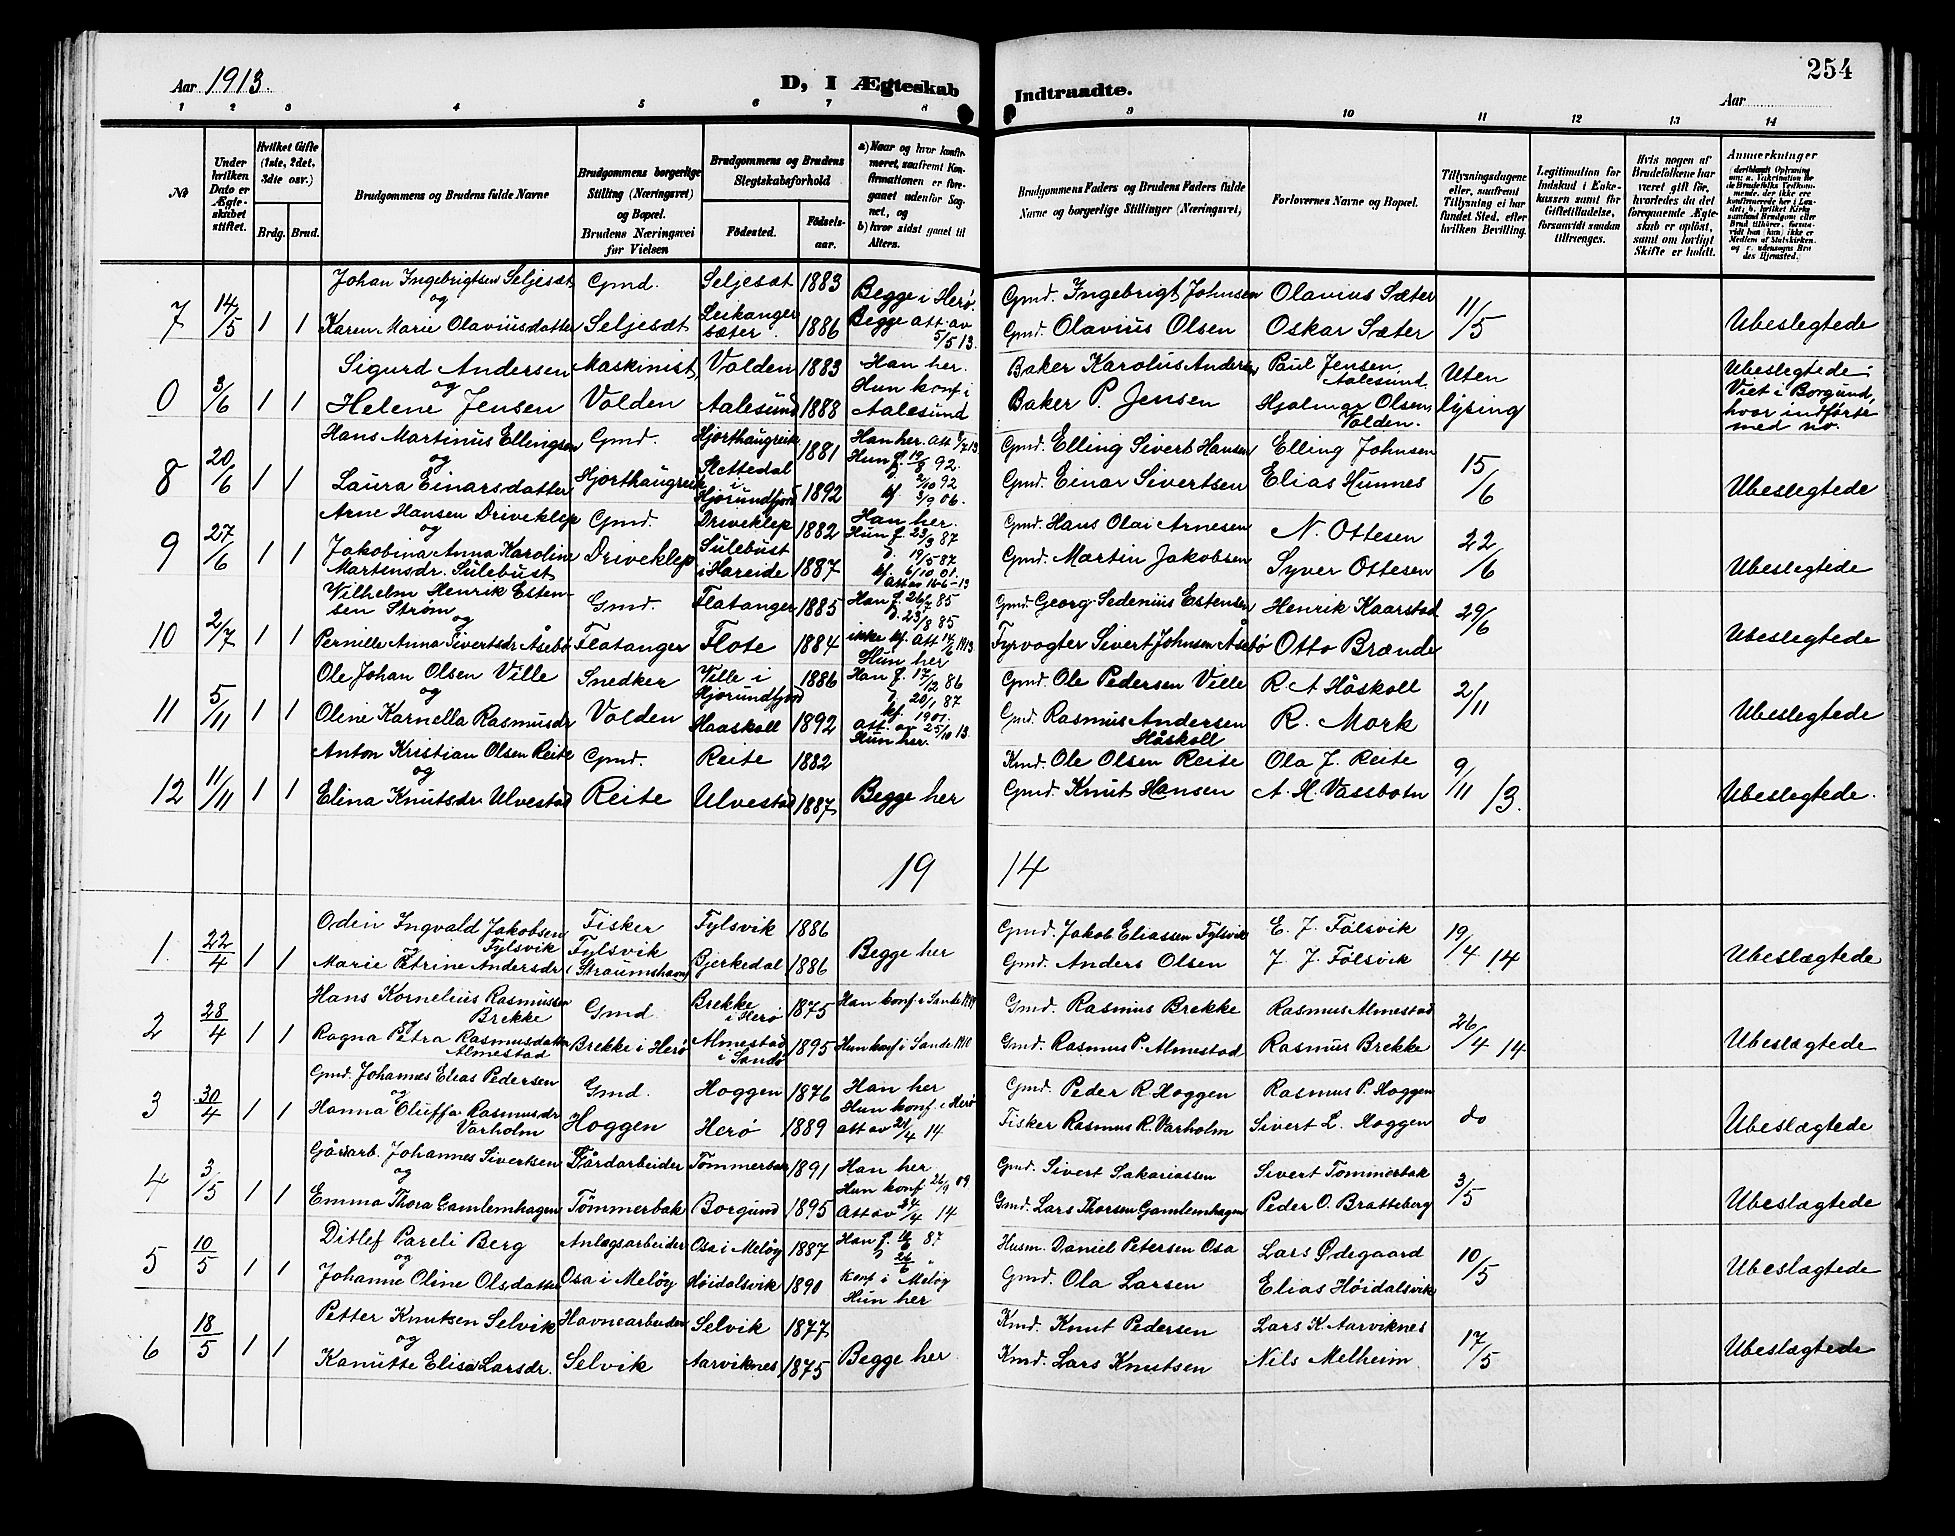 Aar 1913.
D, I Ægteskab
Indtraadte.
254
Aar
1 2 3 4 5 6 7 8 9 10 11 12 13 14
No
Under hvilken Dato er Ægteskabet stiftet.
Hvilket Gifte (1ste, 2det, 3die osv.)
Brdg. Brud.
Brudgommens og Brudens fulde Navne
Brudgommens borgerlige Stilling (Næringsvei) og Bopæl. Brudens Næringsvei før Vielsen
Brudgommens og Brudens Slegtskabsforhold
Fødested.
Fødselsaar.
a) Naar og hvor konfirmeret, saafremt Konfirmationen er foregaaet udenfor Sognet, og
b) hvor sidst gaaet til Alters.
Brudgommens Faders og Brudens Faders fulde Navne og borgerlige Stillinger (Næringsvei)
Forlovernes Navne og Bopæl.
Tillysningsdagene eller, saafremt Tillysning ei har fundet Sted, efter hvilken Bevilling.
Legitimation for Indskud i Enkekassen samt for Giftetilladelse, forsaavidt saadan tiltrænges.
Hvis nogen af Brudefolkene har været gift før, hvorledes da det foregaaende Ægteskab er opløst, samt om lovligt Skifte er holdt.
Anmerkninger
7 14/5 1 1 Johan Ingebrigtsen Seljesæt Gmd. Seljesæt 1883 Begge i Herø. Gmd. Ingebrigt Johnsen Olavius Sæter 11/5
og
Karen Marie Olaviusdatter Seljesæt Leikanger sæter 1886 Begge att. av 5/5 13. Gmd. Olavius Olsen Oskar Sæter Ubeslegtede
0 3/6 1 1 Sigurd Andersen Maskinist, Volden 1883 Han her. Baker Karolus Andersen Paul Jensen, Aalesund. Uten lysing Ubeslegtede;
og
Helene Jensen Volden Aalesund 1888 Hun konf i Aalesund Baker P. Jensen Hjalmar Olsen Volden. Viet i Borgund, hvor indførte med no.
8 20/6 1 1 Hans Martinus Ellingsen Gmd. Hjorthaugreik 1881 Han her. Att 9/7 13 Gmd. Elling Sivert Hansen Elling Johnsen 15/6
og
Laura Einarsdatter Hjorthaugreik Rettedal i Hjørundfjord 1892 Hun f. 19/8 92. D. 2/10 92 kf. 3/9 06. Gmd. Einar Sivertsen Elias Hunnes Ubeslegtede
9 27/6 1 1 Arne Hansen Driveklep Gmd. Driveklep 1882 Han her. Gmd. Hans Olai Arnesen N. Ottesen 22/6
og
Jakobina Anna Karoline Martensdr. Sulebust Driveklep Sulebust i Hareide 1887 Hun f. 23/3 87 D. 19/5 87 kf. 6/10 01. Att av 16-6-13 Gmd. Martin Jakobsen Syver Ottesen Ubeslegtede
10 2/7 1 1 Vilhelm Henrik Estensen Strøm Gmd. Flatanger 1885 Han f. 26/7 85 D. 23/8 85 Gmd. Georg Sedenius Estensen Henrik Kaarstad 29/6
og
Pernille Anna Sivertsdr Åsebø Flatanger Flote 1884 ikke kf. Att 14/6 1913 Hun her Fyrvogter Sivert Johnsen Åsebø Otto Brænde Ubeslegtede
11 5/11 1 1 Ole Johan Olsen Ville Snedker Ville i Hjørundfjord 1886 Han f. 17/12 86 D. 20/1 87 kf. 1901. Gmd. Ole Pedersen Ville R. A Håskoll 2/11
og
Oline Karnella Rasmusdr Volden Haaskoll 1892 att. av 25/10 13. Hun her. Gmd. Rasmus Andersen Håskoll R. Mork Ubeslegtede
12 11/11 1 1 Anton Kristian Olsen Reite Gmd. Reite 1882 Kmd. Ole Olsen Reite Ola J. Reite 9/11 13.
og
Elina Knutsdr. Ulvestad Reite Ulvestad 1887 Begge her Gmd. Knut Hansen A. H. Vassbotn Ubeslegtede.
19 14
1. 22/4 1 1 Odin Ingvald Jakobsen Fylsvik Fisker Fylsvik 1886 Begge her Gmd. Jakob Eliassen Fylsvik E. J. Følsvik 19/4 14
Marie Petrine Andersdr Fylsvik i Straumshavn Bjerkedal 1886 Gmd. Anders Olsen J. J. Følsvik Ubeslægtede
2 28/4 1 1 Hans Kornelius Rasmussen Brekke Gmd. Brekke i Herø 1875 Han konf i Sande Gmd. Rasmus Brekke Rasmus Almestad 26/4 14
og
Ragna Petra Rasmusdatter Almestad Brekke i Herø Almestad i Sande 1895 Hun konf i Sande 1910 Gmd. Rasmus P. Almestad Rasmus Brekke Ubeslægtede
3 30/4 1 1 Gmd. Johannes Elias Pedersen Gmd. Hoggen 1876 Han her Gmd. Peder R. Hoggen Rasmus P. Hoggen do
og
Hanna Oluffa Rasmusdr Varholm Hoggen Herø 1889 Hun konf. i Herø att av 21/4 14 Fisker Rasmus R. Varholm Sivert L. Hoggen Ubeslægtede
4 3/5 1 1 Gårdarb. Johannes Sivertsen Gårdarbeider Tømmerbak 1891 Han her Gmd. Sivert Sakariassen Sivert Tømmerbak 3/5
og
Emma Thora Gamlemhagen Tømmerbak Borgund 1895 Hun konf 26/9 09. Att av 24/4 14 Gmd. Lars Thorsen Gamlemhagen Peder O. Bratteberg Ubeslægtede
5 10/5 1 1 Ditlef Pareli Berg Anlægsarbeider Osa i Meløy 1887 Han f. 87 Husm. Daniel Petersen Osa Lars Ødegaard 10/5
og
Johanne Oline Olsdatter Osa i Meløy Høidalsvik 1890 D 26/6 " konf i Meløy Hun her Gmd. Ola Larsen Elias Høidalsvik Ubeslægtede
6 18/5 1 1 Petter Knutsen Selvik Havnearbeider Selvik 1877 Kmd. Knut Pedersen Lars K. Aarviknes 17/5
og
Kanutte Elisa Larsdr. Selvik Aarviknes 1875 Begge her Kmd. Lars Knutsen Nils Melheim Ubeslægtede